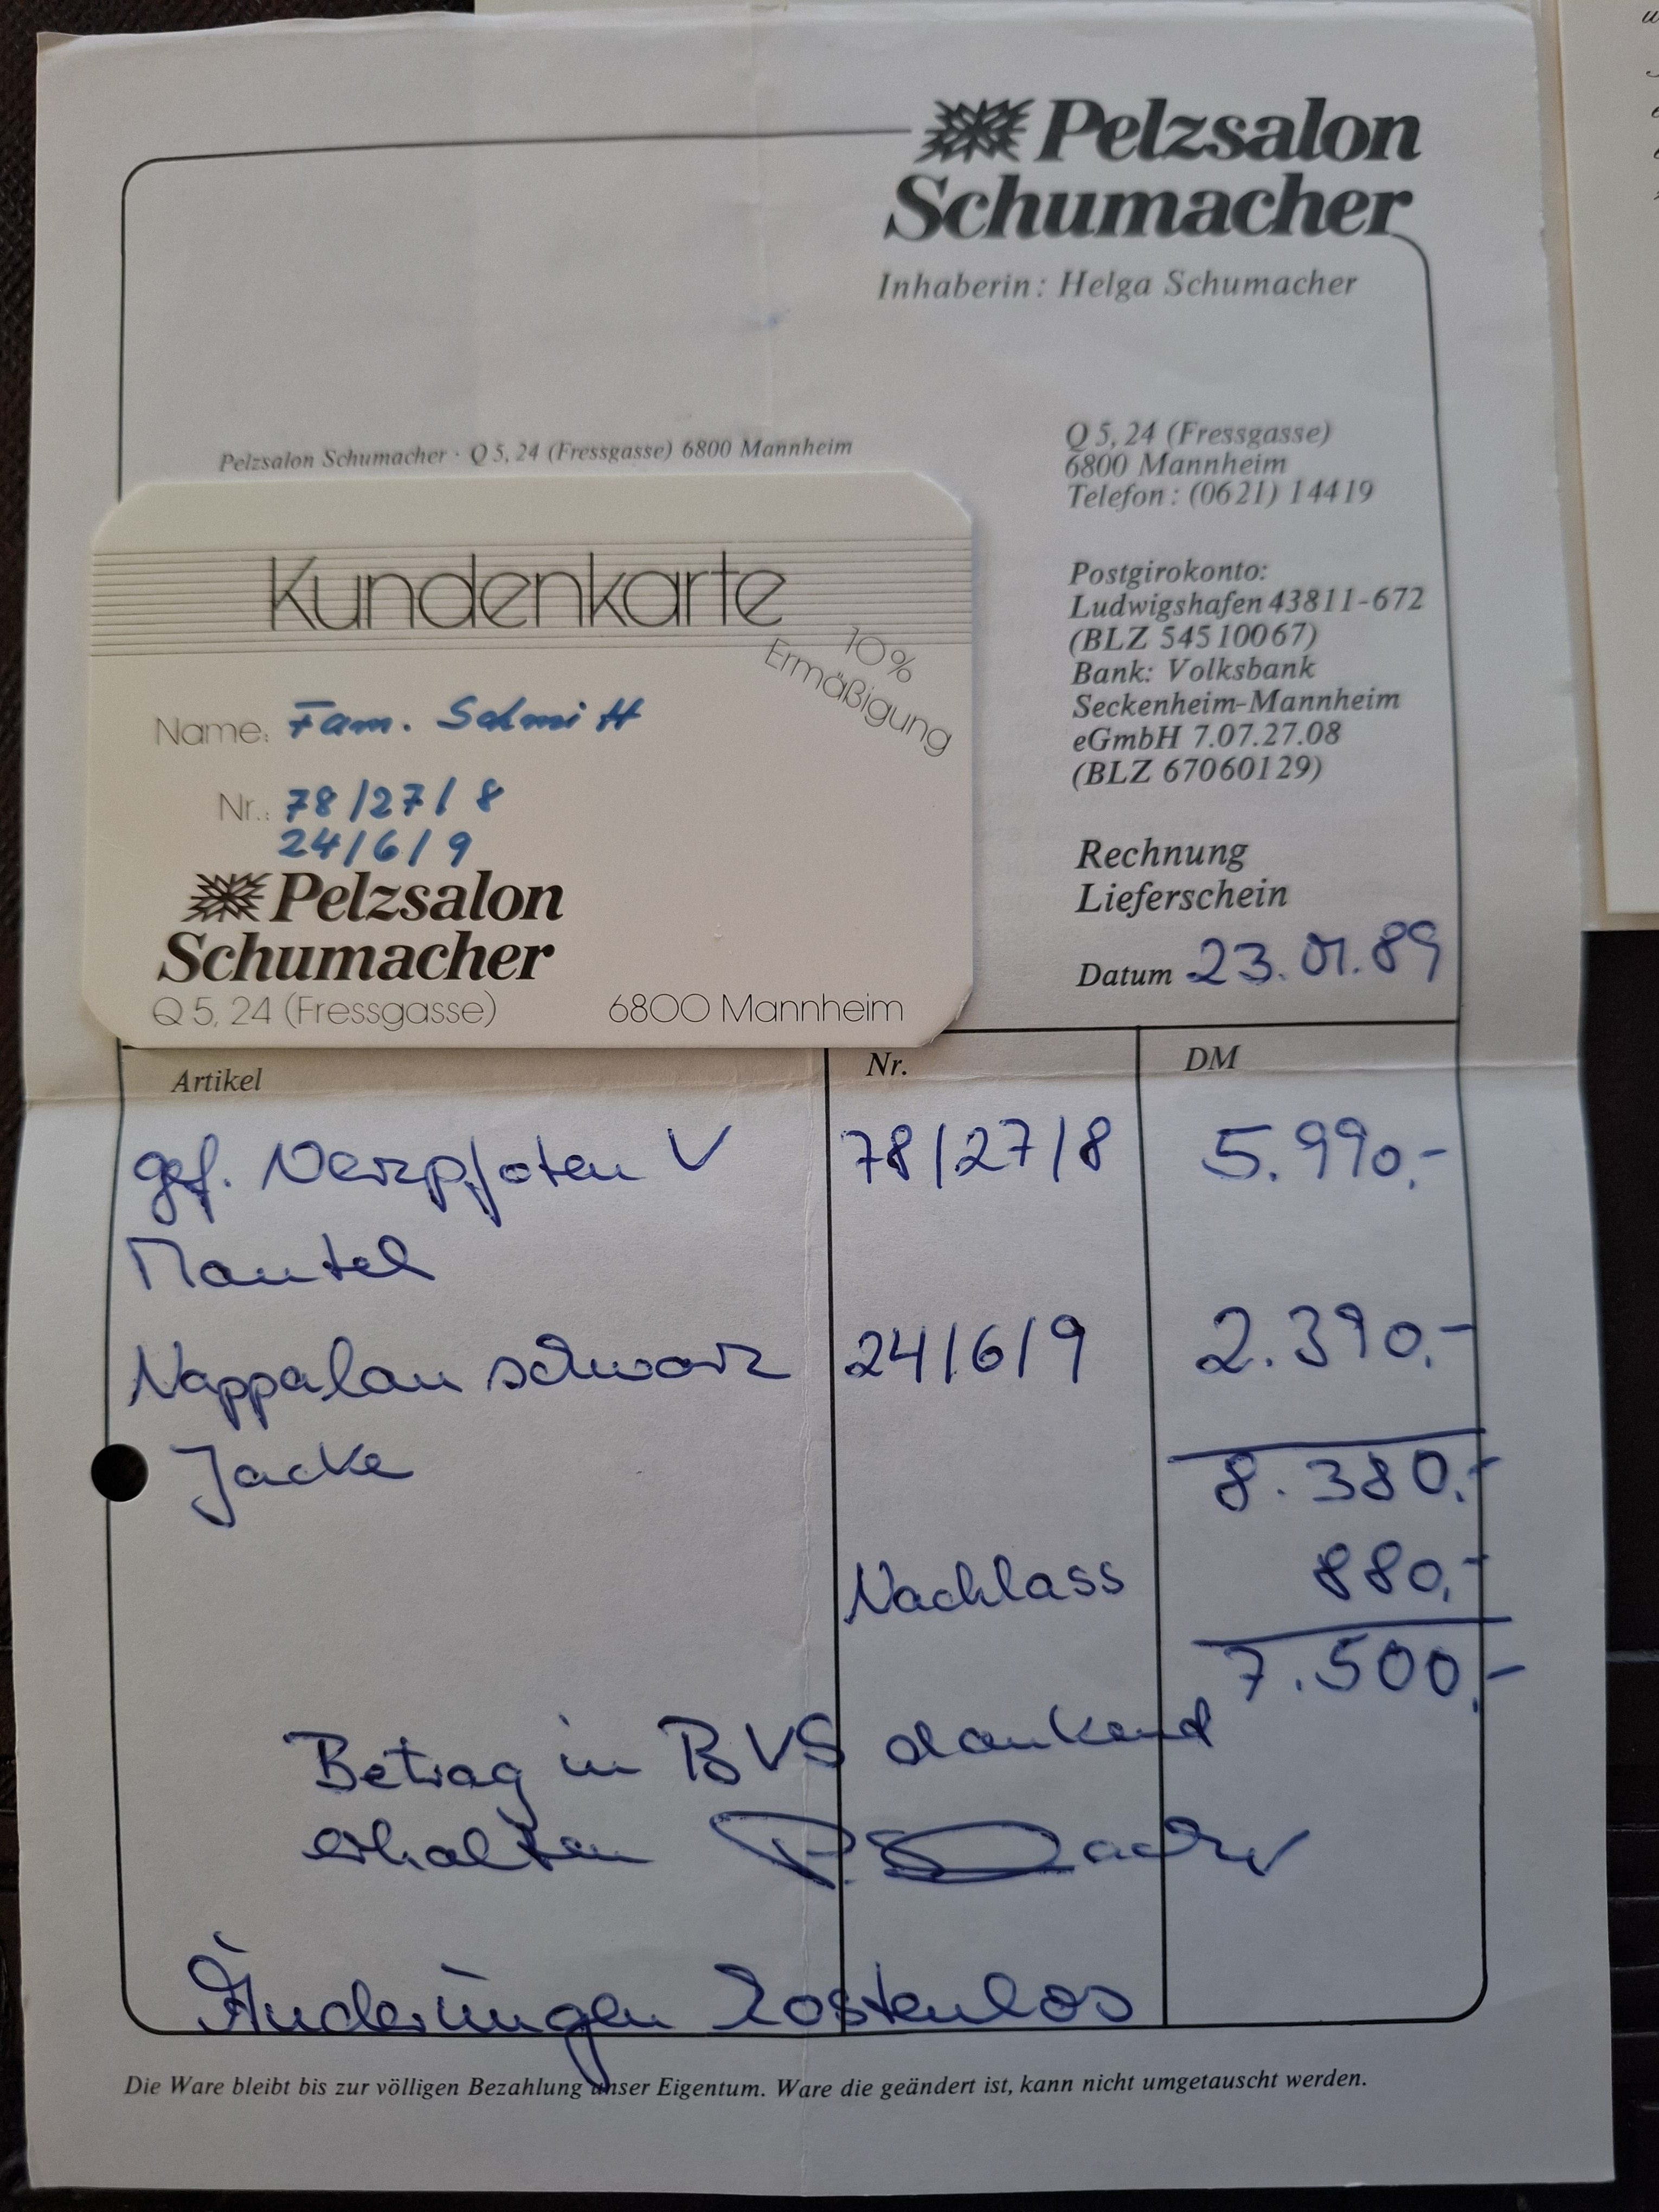 Pelzsalon
Schumacher
Inhaberin: Helga Schumacher
Pelzsalon Schumacher · Q 5, 24 (Fressgasse) 6800 Mannheim
Q 5, 24 (Fressgasse)
6800 Mannheim
Telefon: (06 21) 1 44 19
Postgirokonto:
Ludwigshafen 43811-672
(BLZ 545 100 67)
Bank: Volksbank
Seckenheim-Mannheim
eGmbH 7.07.27.08
(BLZ 670 601 29)
Rechnung
Lieferschein
Datum 23.01.89
Kundenkarte
10%
Ermäßigung
Name: Fam. Schmitt
Nr.: 78/27/8
24/6/9
Pelzsalon
Schumacher
Q 5, 24 (Fressgasse) 6800 Mannheim
Artikel Nr. DM
gef. Nerzpfoten V 78/27/8 5.990,-
Mantel
Nappalan schwarz 24/6/9 2.390,-
Jacke
8.380,-
Nachlass 880,-
7.500,-
Betrag in BVS dankend
erhalten
Änderungen kostenlos
Die Ware bleibt bis zur völligen Bezahlung unser Eigentum. Ware die geändert ist, kann nicht umgetauscht werden.